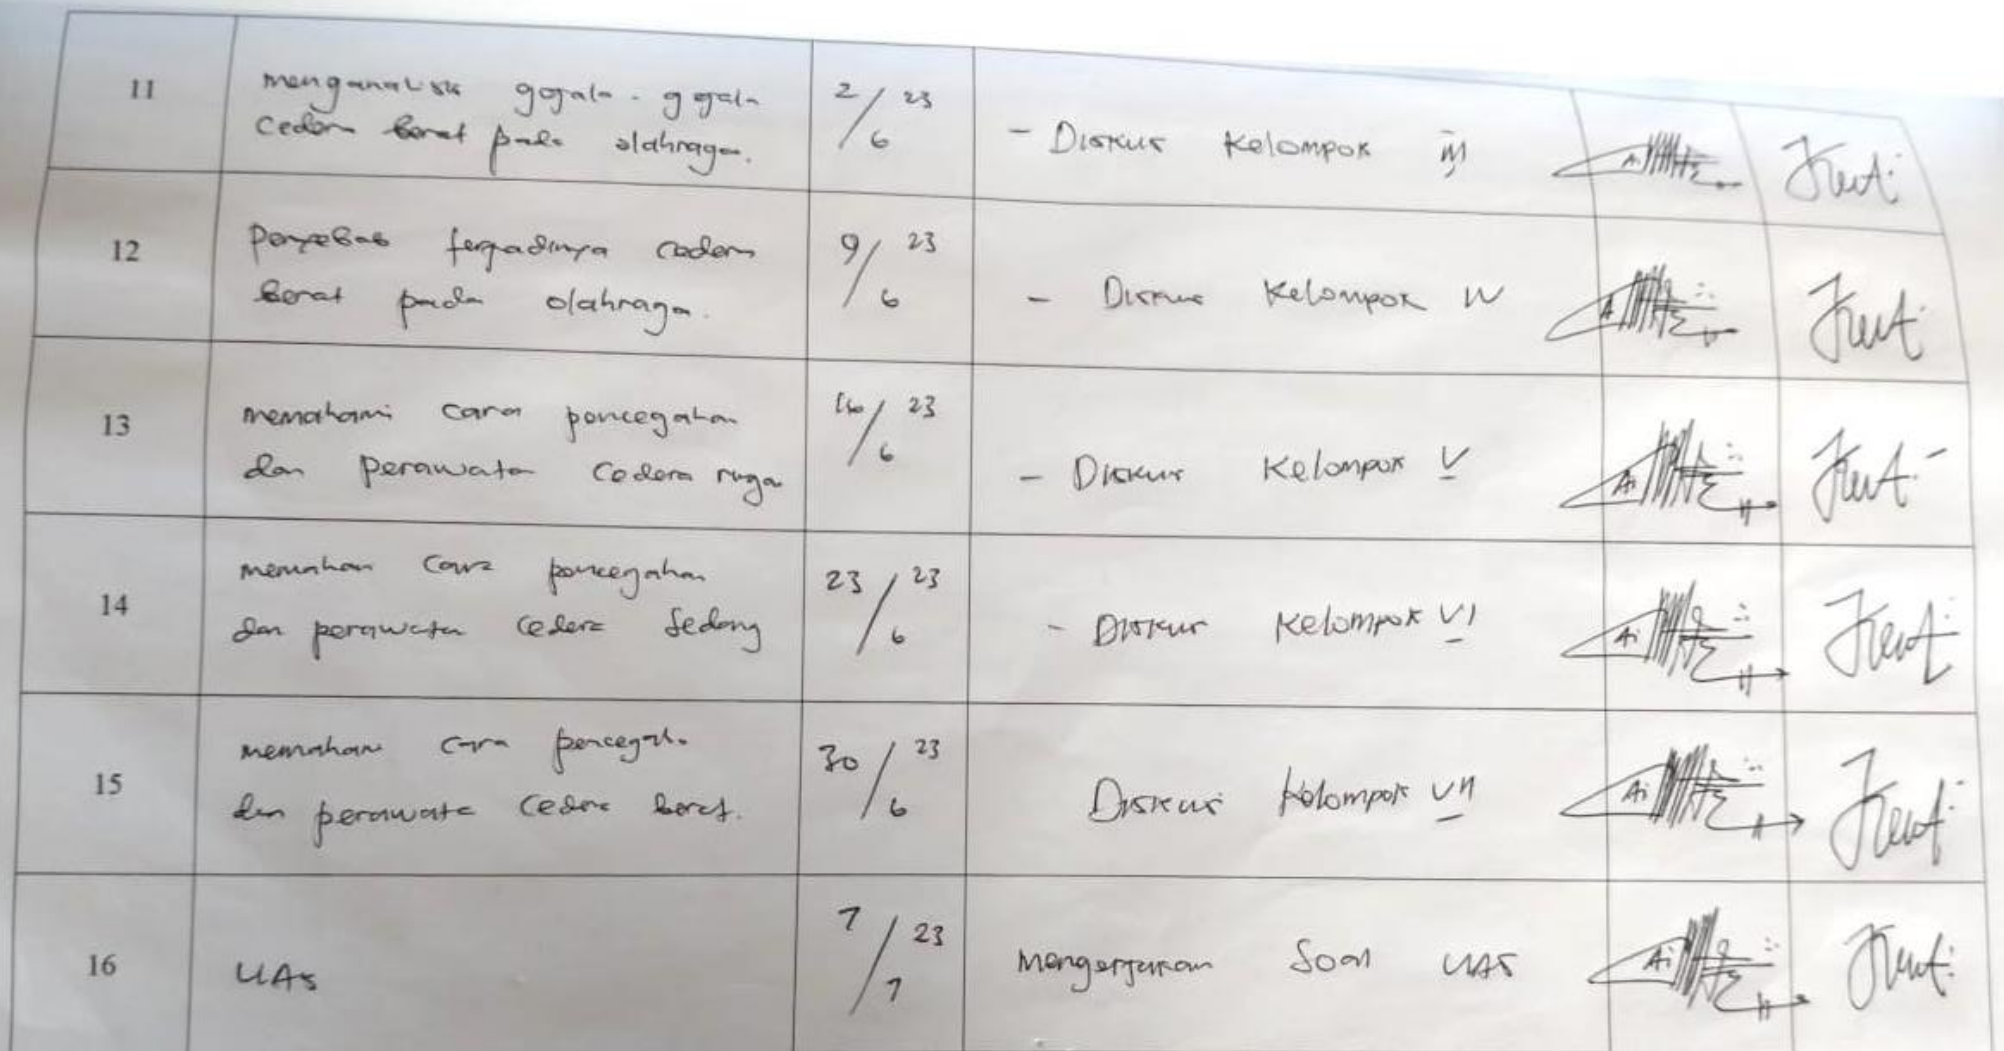 11
menganalisis gejala-gejala
cedera berat pada olahraga.
2/6 23
- Diskusi Kelompok III
12
penyebab terjadinya cedera
berat pada olahraga.
9/6 23
- Diskusi Kelompok IV
13
memahami cara pencegahan
dan perawatan cedera ringan
16/6 23
- Diskusi Kelompok V
14
memahami cara pencegahan
dan perawatan cedera sedang
23/6 23
- Diskusi Kelompok VI
15
memahami cara pencegahan
dan perawatan cedera berat.
30/6 23
Diskusi Kelompok VII
16
UAS
7/7 23
mengerjakan Soal UAS